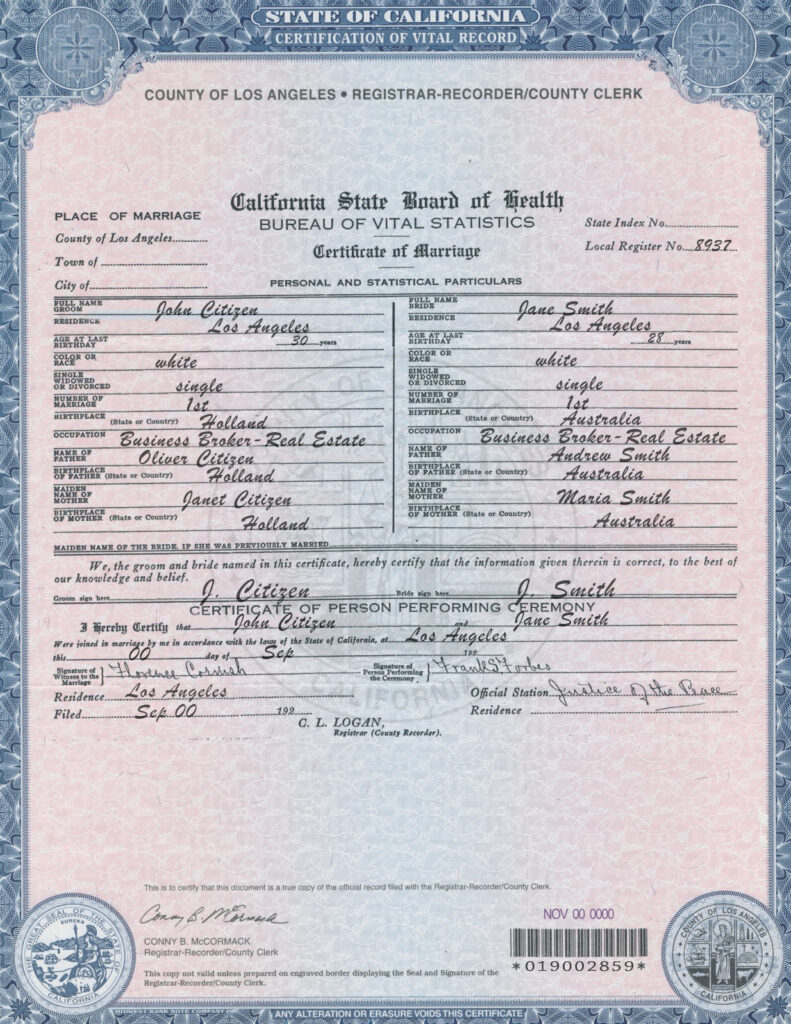 STATE OF CALIFORNIA
CERTIFICATION OF VITAL RECORD
COUNTY OF LOS ANGELES • REGISTRAR-RECORDER/COUNTY CLERK
California State Board of Health
PLACE OF MARRIAGE
BUREAU OF VITAL STATISTICS
State Index No.
County of Los Angeles
Certificate of Marriage
Local Register No. 8937
Town of
City of
PERSONAL AND STATISTICAL PARTICULARS
FULL NAME GROOM John Citizen
RESIDENCE Los Angeles
AGE AT LAST BIRTHDAY 30 years
COLOR OR RACE white
SINGLE WIDOWED OR DIVORCED single
NUMBER OF MARRIAGE 1st
BIRTHPLACE (State or Country) Holland
OCCUPATION Business Broker-Real Estate
NAME OF FATHER Oliver Citizen
BIRTHPLACE OF FATHER (State or Country) Holland
MAIDEN NAME OF MOTHER Janet Citizen
BIRTHPLACE OF MOTHER (State or Country) Holland
FULL NAME BRIDE Jane Smith
RESIDENCE Los Angeles
AGE AT LAST BIRTHDAY 28 years
COLOR OR RACE white
SINGLE WIDOWED OR DIVORCED single
NUMBER OF MARRIAGE 1st
BIRTHPLACE (State or Country) Australia
OCCUPATION Business Broker-Real Estate
NAME OF FATHER Andrew Smith
BIRTHPLACE OF FATHER (State or Country) Australia
MAIDEN NAME OF MOTHER Maria Smith
BIRTHPLACE OF MOTHER (State or Country) Australia
MAIDEN NAME OF THE BRIDE, IF SHE WAS PREVIOUSLY MARRIED
We, the groom and bride named in this certificate, hereby certify that the information given therein is correct, to the best of
our knowledge and belief.
Groom sign here J. Citizen Bride sign here J. Smith
CERTIFICATE OF PERSON PERFORMING CEREMONY
I Hereby Certify that John Citizen and Jane Smith
Were joined in marriage by me in accordance with the laws of the State of California, at Los Angeles
this 00 day of Sep 192
Signature of Witness to the Marriage Florence Cornish Signature of Person Performing the Ceremony Frank S Forbes
Residence Los Angeles Official Station Justice of the Peace
Filed Sep 00 192 Residence
C. L. LOGAN,
Registrar (County Recorder).
This is to certify that this document is a true copy of the official record filed with the Registrar-Recorder/County Clerk.
Conny B. McCormack
NOV 00 0000
CONNY B. McCORMACK
Registrar-Recorder/County Clerk
*019002859*
This copy not valid unless prepared on engraved border displaying the Seal and Signature of the
Registrar-Recorder/County Clerk.
GREAT SEAL OF THE STATE OF CALIFORNIA
EUREKA
COUNTY OF LOS ANGELES
CALIFORNIA
MIDWEST BANK NOTE COMPANY
ANY ALTERATION OR ERASURE VOIDS THIS CERTIFICATE